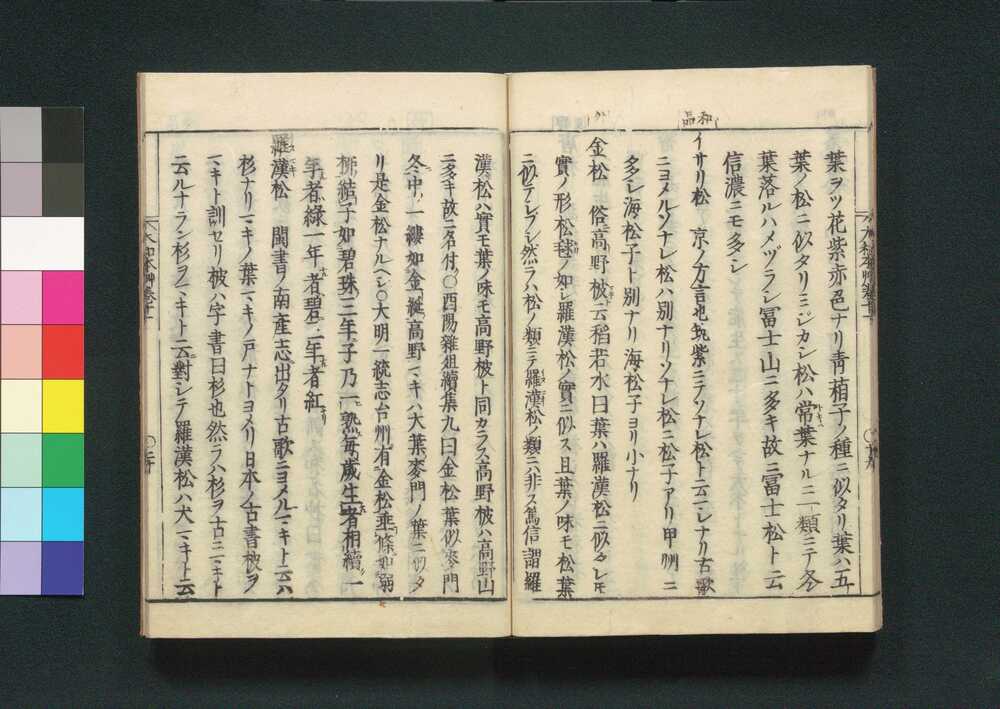 葉ヲツ花紫赤色ナリ青葙子ノ種ニ似タリ葉ハ五
葉ノ松ニ似タリミジカシ松ハ常葉ナルニ一類ニテ冬
葉落ルハメヅラシ冨士山ニ多キ故ニ冨士松ト云
信濃ニモ多シ
和品
イサリ松 京ノ方言也筑紫ニテソナレ松ト云一シナリ古歌
ニヨメルソナレ松ハ別ナリソナレ松ニ松子アリ甲州ニ
多シ海松子ト別ナリ海松子ヨリ小ナリ
外
金松 俗高野柀ト云稻若水曰葉ハ羅漢松ニ似タレモ
實ノ形松毬ノ如シ羅漢松ノ實ニ似ス且葉ノ味モ松葉
ニ似テシブシ然ラハ松ノ類ニテ羅漢松ノ類ニハ非ス篤信謂羅
漢松ハ實モ葉ノ味モ高野柀ト同カラス高野柀ハ高野山
ニ多キ故ニ名付〇酉陽雜俎續集九曰金松葉似麥門
冬中一縷如金綖高野マキハ大葉麥門ノ葉ニ似タ
リ是金松ナルヘシ〇大明一統志台州有金松垂條如弱
柳結子如碧珠三年子乃一熟每歳生者相續一
年者綠一年者碧二年者紅
羅漢松 閩書ノ南産志ニ出タリ古歌ニヨメルマキト云ハ
杉ナリマキノ葉マキノ戸ナトヨメリ日本ノ古書柀ヲ
マキト訓セリ柀ハ字書曰杉也然ラハ杉ヲ古ニマキト
云ルナラン杉ヲマキト云ニ對シテ羅漢松ハ犬マキト云